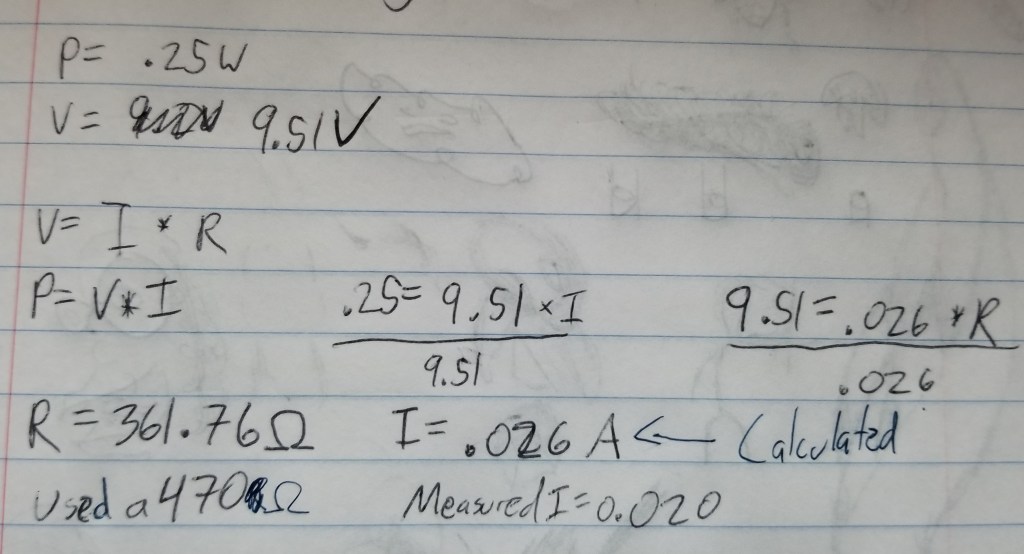 P= .25W
V= 9.51V
V= I * R
P= V*I .25= 9.51 * I 9.51=.026 * R
9.51 .026
R = 361.76Ω I= .026 A ← Calculated
Used a 470Ω Measured I=0.020